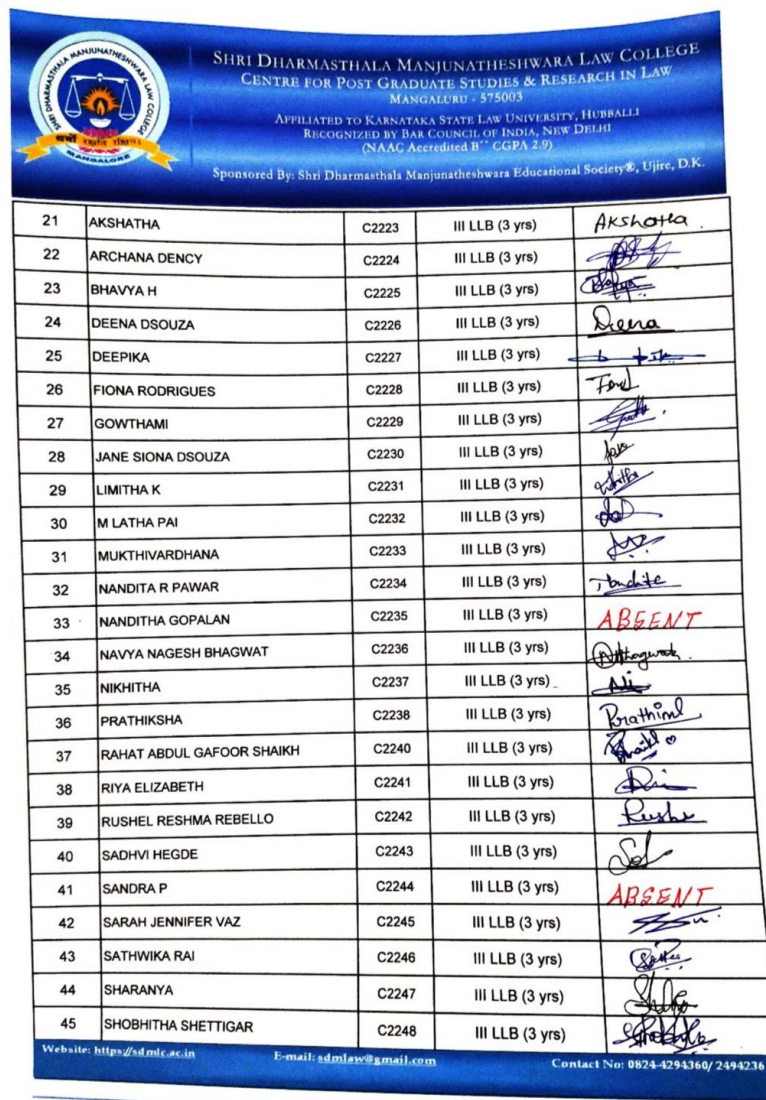 SHRI DHARMASTHALA MANJUNATHESHWARA LAW COLLEGE
MANGALORE
SHRI DHARMASTHALA MANJUNATHESHWARA LAW COLLEGE
CENTRE FOR POST GRADUATE STUDIES & RESEARCH IN LAW
MANGALURU - 575003
AFFILIATED TO KARNATAKA STATE LAW UNIVERSITY, HUBBALLI
RECOGNIZED BY BAR COUNCIL OF INDIA, NEW DELHI
(NAAC Accredited B++ CGPA 2.9)
Sponsored By: Shri Dharmasthala Manjunatheshwara Educational Society®, Ujire, D.K.
21 AKSHATHA C2223 III LLB (3 yrs) Akshatha
22 ARCHANA DENCY C2224 III LLB (3 yrs)
23 BHAVYA H C2225 III LLB (3 yrs)
24 DEENA DSOUZA C2226 III LLB (3 yrs) Deena
25 DEEPIKA C2227 III LLB (3 yrs)
26 FIONA RODRIGUES C2228 III LLB (3 yrs)
27 GOWTHAMI C2229 III LLB (3 yrs)
28 JANE SIONA DSOUZA C2230 III LLB (3 yrs)
29 LIMITHA K C2231 III LLB (3 yrs)
30 M LATHA PAI C2232 III LLB (3 yrs)
31 MUKTHIVARDHANA C2233 III LLB (3 yrs)
32 NANDITA R PAWAR C2234 III LLB (3 yrs)
33 NANDITHA GOPALAN C2235 III LLB (3 yrs) ABSENT
34 NAVYA NAGESH BHAGWAT C2236 III LLB (3 yrs)
35 NIKHITHA C2237 III LLB (3 yrs)
36 PRATHIKSHA C2238 III LLB (3 yrs)
37 RAHAT ABDUL GAFOOR SHAIKH C2240 III LLB (3 yrs)
38 RIYA ELIZABETH C2241 III LLB (3 yrs)
39 RUSHEL RESHMA REBELLO C2242 III LLB (3 yrs)
40 SADHVI HEGDE C2243 III LLB (3 yrs)
41 SANDRA P C2244 III LLB (3 yrs) ABSENT
42 SARAH JENNIFER VAZ C2245 III LLB (3 yrs)
43 SATHWIKA RAI C2246 III LLB (3 yrs)
44 SHARANYA C2247 III LLB (3 yrs)
45 SHOBHITHA SHETTIGAR C2248 III LLB (3 yrs)
Website: https://sdmlc.ac.in E-mail: sdmlaw@gmail.com Contact No: 0824-4294360/ 2494236